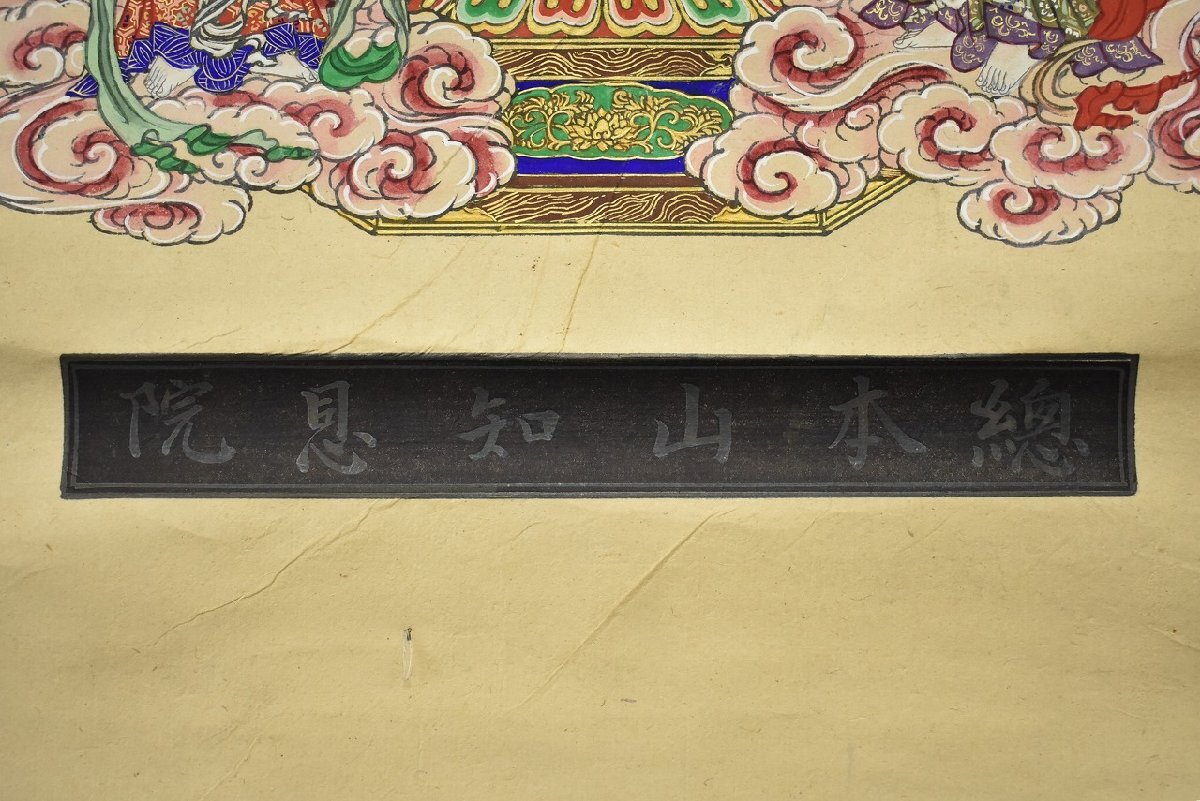 總本山知恩院